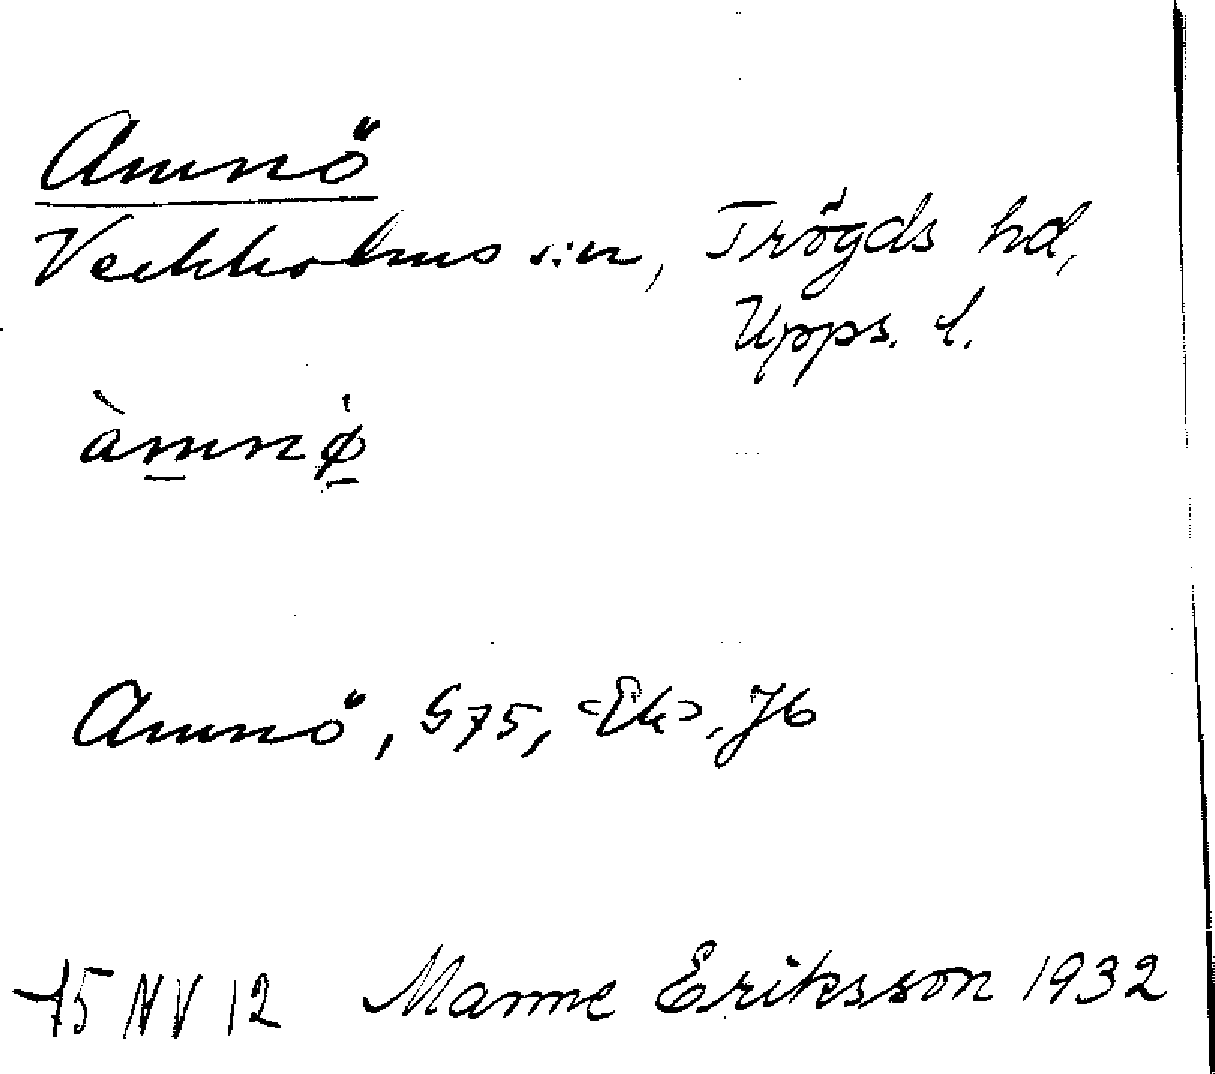 Amnö
Veckholms sn, Trögds hd,
Upps. l.
àmnø̱
Amnö, G75, <Ek>, J6
75 NV 12 Manne Eriksson 1932